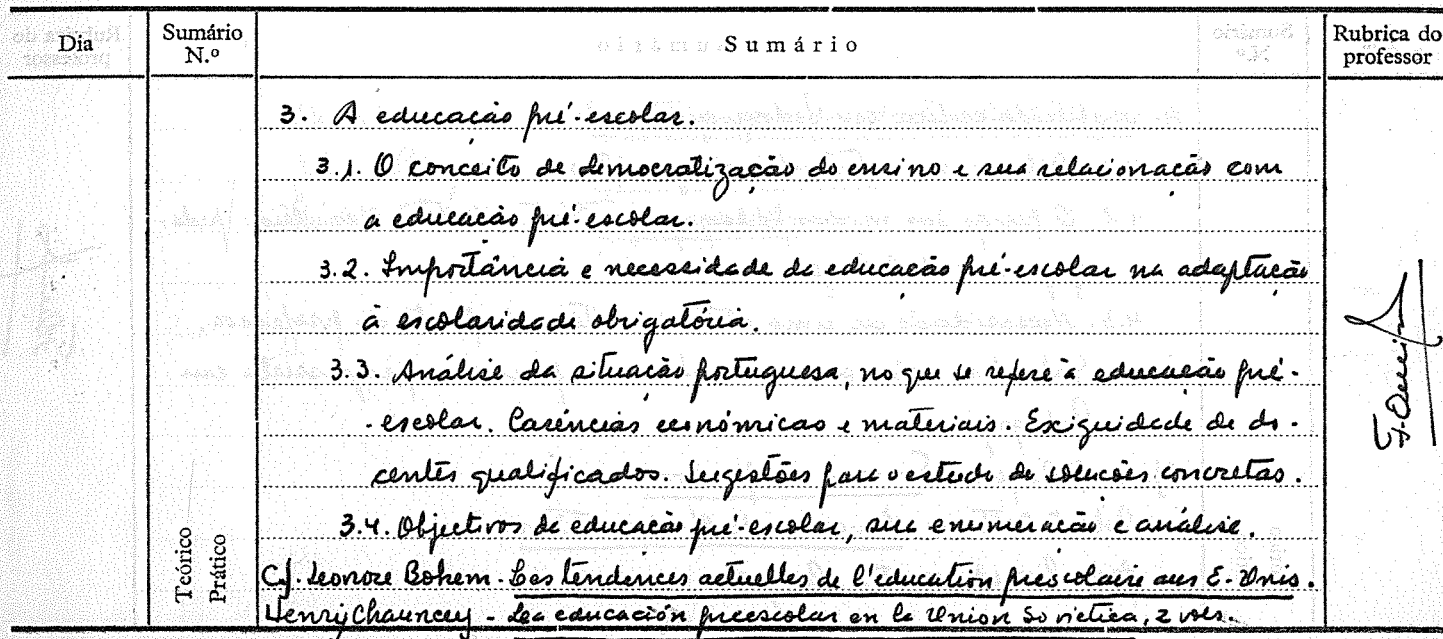 Dia
Sumário N.º
Sumário
Rubrica do professor
3. A educação pré-escolar.
3.1. O conceito de democratização do ensino e sua relacionação com
a educação pré-escolar.
3.2. Importância e necessidade da educação pré-escolar na adaptação
à escolaridade obrigatória.
3.3. Análise da situação portuguesa, no que se refere à educação pré-
-escolar. Carências económicas e materiais. Exiguidade de do-
centes qualificados. Sugestões para o estudo de soluções concretas.
3.4. Objectivos da educação pré-escolar, sua enumeração e análise.
Cf. Leonore Bohem - Les tendences actuelles de l'education prescolaire aux E-Unis.
Henry Chauncey - La educación preescolar en la Union Sovietica, 2 vols.
Teórico
Prático